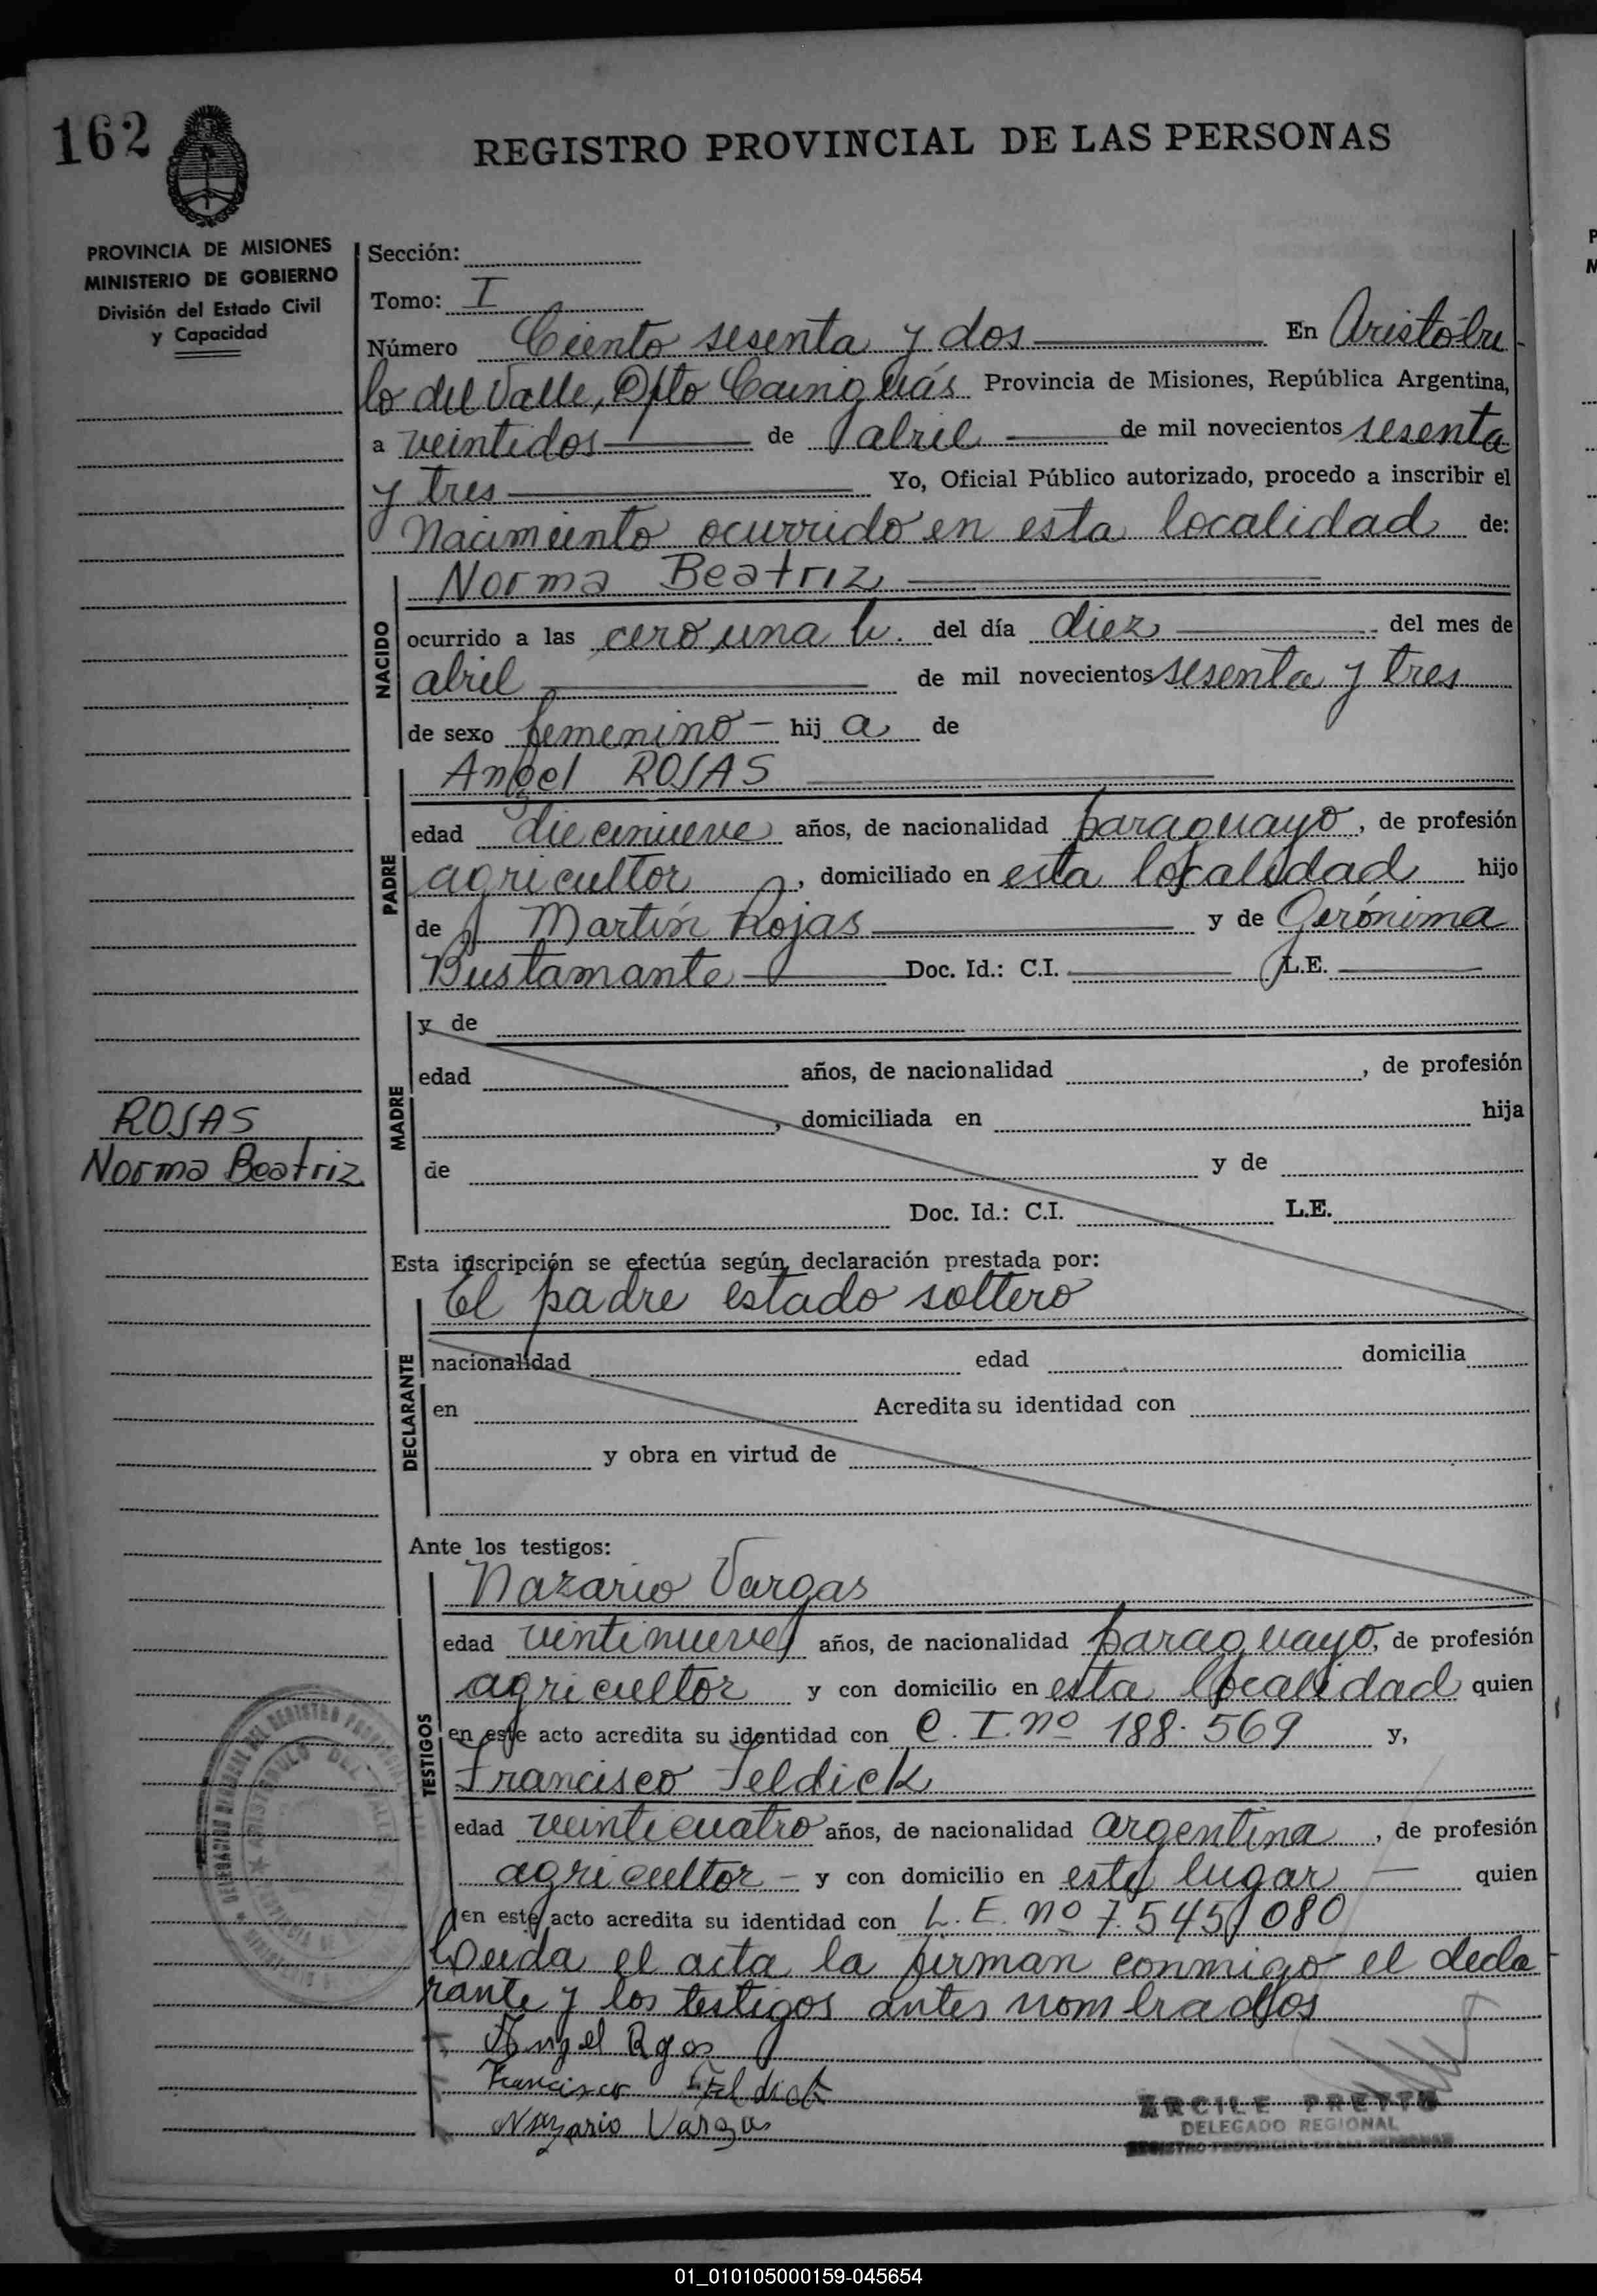 162
REGISTRO PROVINCIAL DE LAS PERSONAS
PROVINCIA DE MISIONES
MINISTERIO DE GOBIERNO
División del Estado Civil
y Capacidad
Sección:
Tomo: I
Número Ciento sesenta y dos En Aristóbu
lo del Valle, Dpto Cainguás Provincia de Misiones, República Argentina,
a veintidos de abril de mil novecientos sesenta
y tres Yo, Oficial Público autorizado, procedo a inscribir el
Nacimiento ocurrido en esta localidad de:
NACIDO
Norma Beatriz
ocurrido a las cero una h. del día diez del mes de
abril de mil novecientos sesenta y tres
de sexo femenino - hij a de
PADRE
Angel ROJAS
edad diecinueve años, de nacionalidad paraguayo, de profesión
agricultor, domiciliado en esta localidad hijo
de Martín Rojas y de Gerónima
Bustamante Doc. Id.: C.I. L.E.
MADRE
y de
edad años, de nacionalidad , de profesión
, domiciliada en hija
de y de
Doc. Id.: C.I. L.E.
ROJAS
Norma Beatriz
Esta inscripción se efectúa según declaración prestada por:
DECLARANTE
El padre estado soltero
nacionalidad edad domicilia
en Acredita su identidad con
y obra en virtud de
Ante los testigos:
TESTIGOS
Nazario Vargas
edad vintinueve años, de nacionalidad paraguayo, de profesión
agricultor y con domicilio en esta localidad quien
en este acto acredita su identidad con C. I. nº 188.569 y,
Francisco Feldick
edad veinticuatro años, de nacionalidad argentina, de profesión
agricultor - y con domicilio en este lugar - quien
en este acto acredita su identidad con L. E. nº 7.545.080
Leida el acta la firman conmigo el decla
rante y los testigos antes nombrados
Angel Rojas
Francisco Feldick
Nazario Vargas
ARCILE PRETTO
DELEGADO REGIONAL
REGISTRO PROVINCIAL DE LAS PERSONAS
01_010105000159-045654